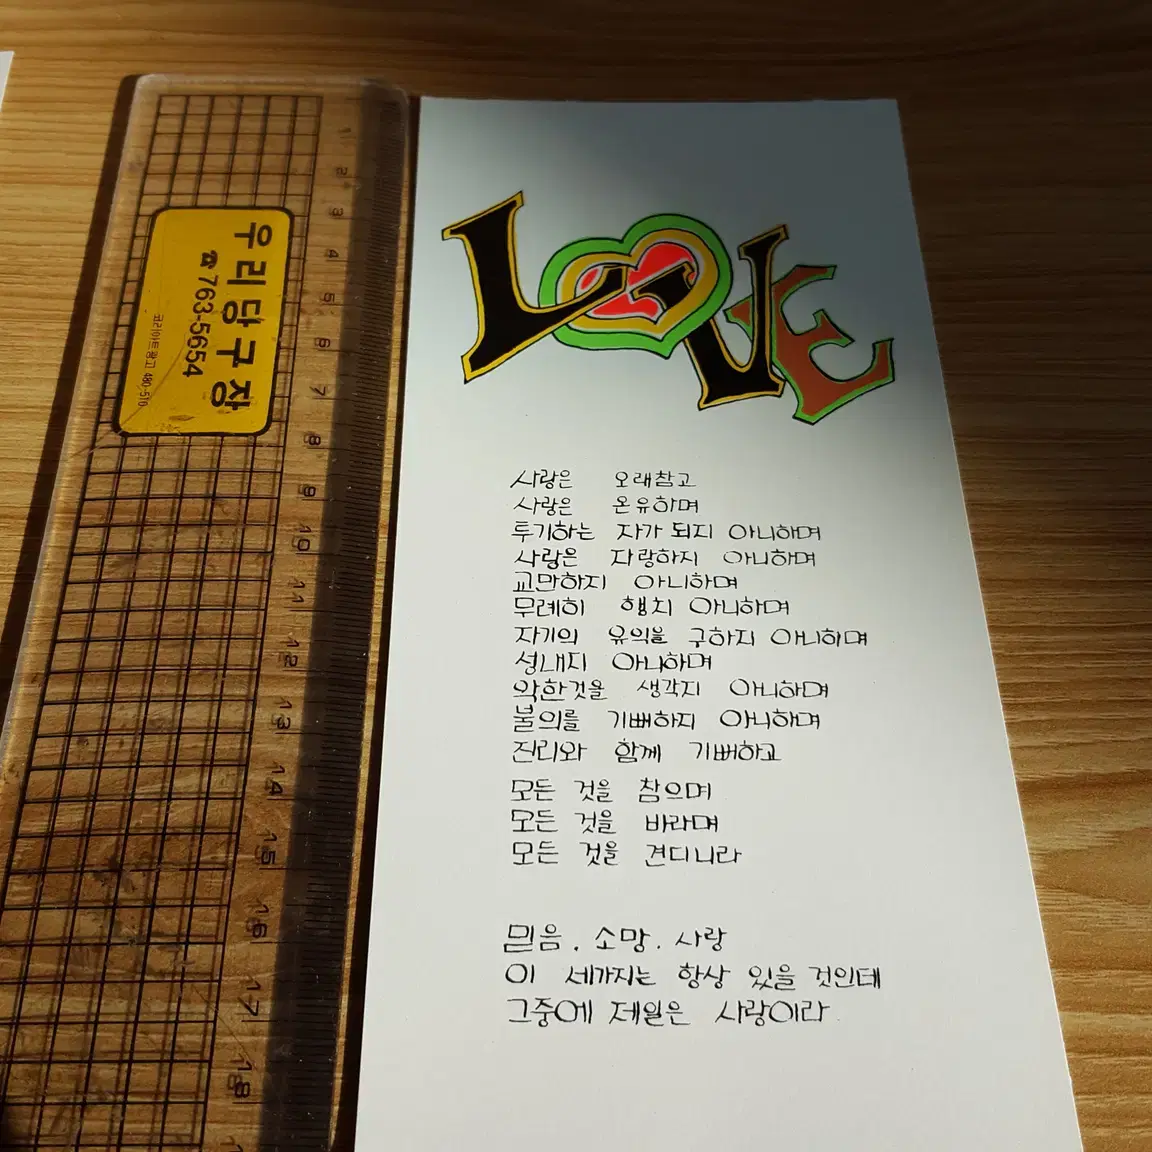 우리당구장
☎763-5654
코리아트광고 480-516
1
2
3
4
5
6
7
8
9
10
11
12
13
14
15
16
17
18
LOVE
사랑은 오래참고
사랑은 온유하며
투기하는 자가 되지 아니하며
사람은 자랑하지 아니하며
교만하지 아니하며
무례히 행치 아니하며
자기의 유익을 구하지 아니하며
성내지 아니하며
악한것을 생각지 아니하며
불의를 기뻐하지 아니하며
진리와 함께 기뻐하고
모든 것을 참으며
모든 것을 바라며
모든 것을 견디니라
믿음 . 소망 . 사랑
이 세가지는 항상 있을 것인데
그중에 제일은 사랑이라